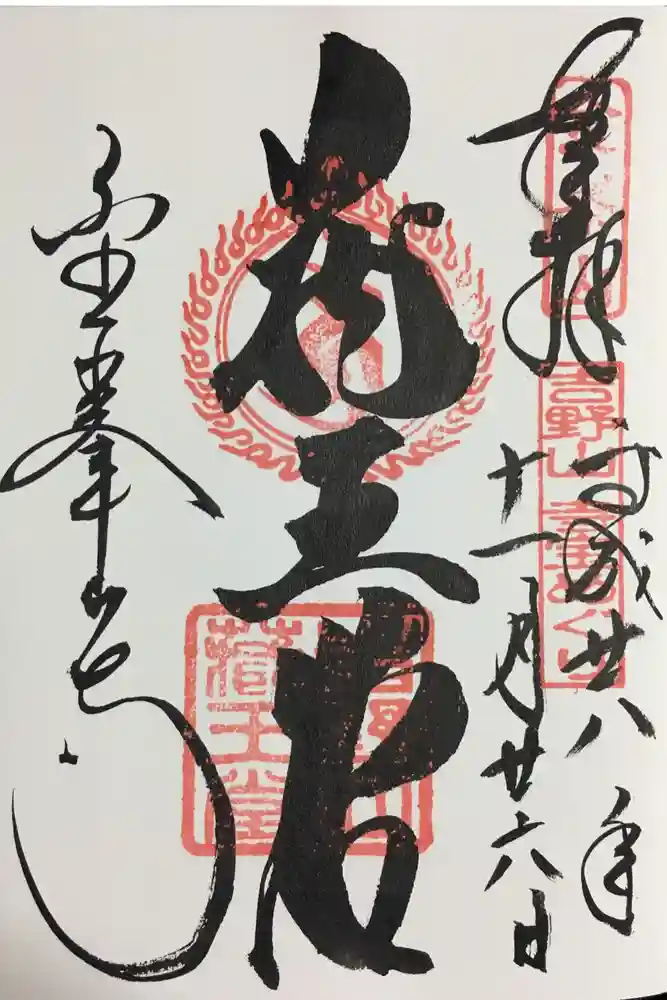 奉拝
平成廿八年
十一月廿六日
蔵王堂
金峯山寺
吉野山
蔵王堂